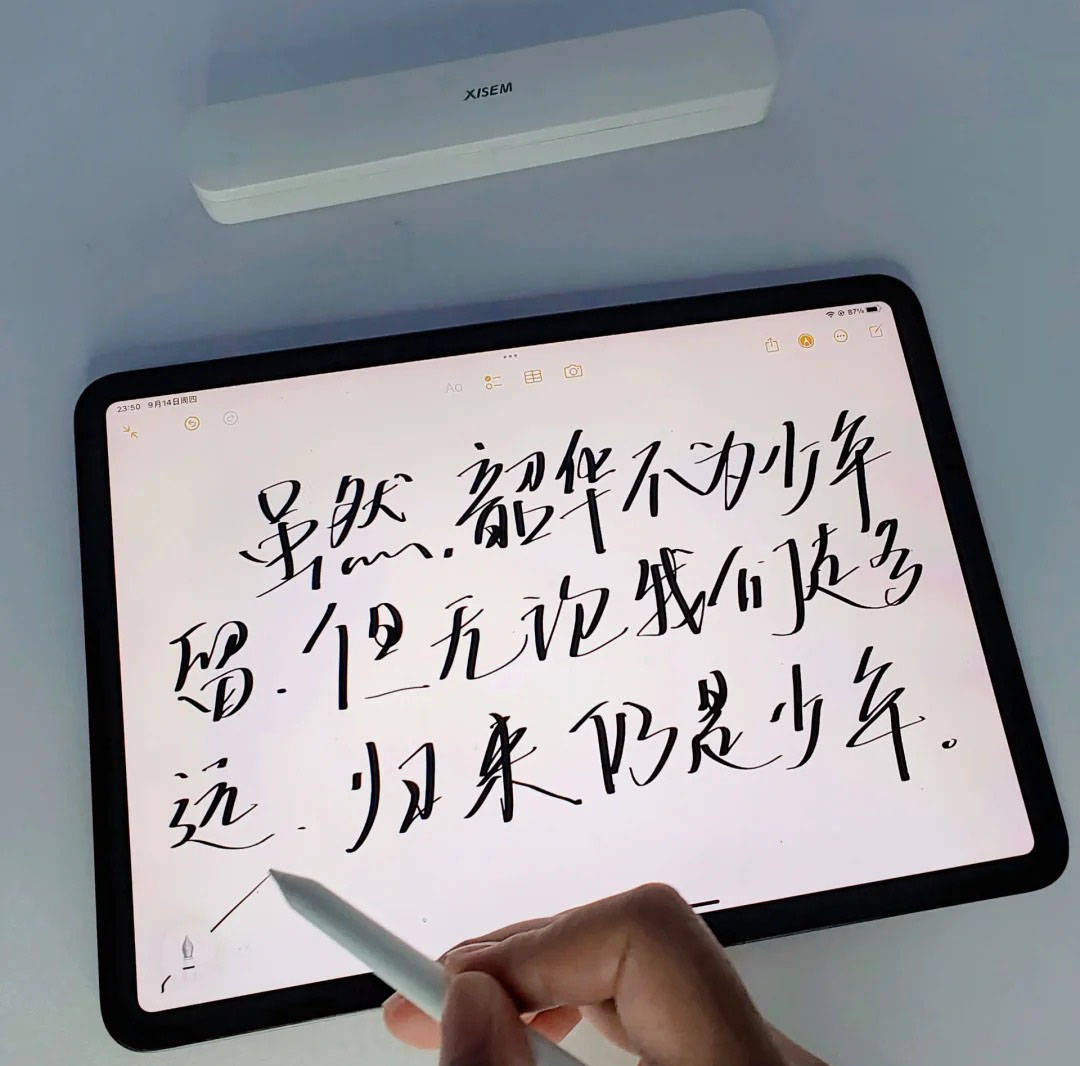 XISEM
87%
23:50 9月14日周四
Aa
虽然.韶华不为少年
留.但无论我们走多
远.归来仍是少年。